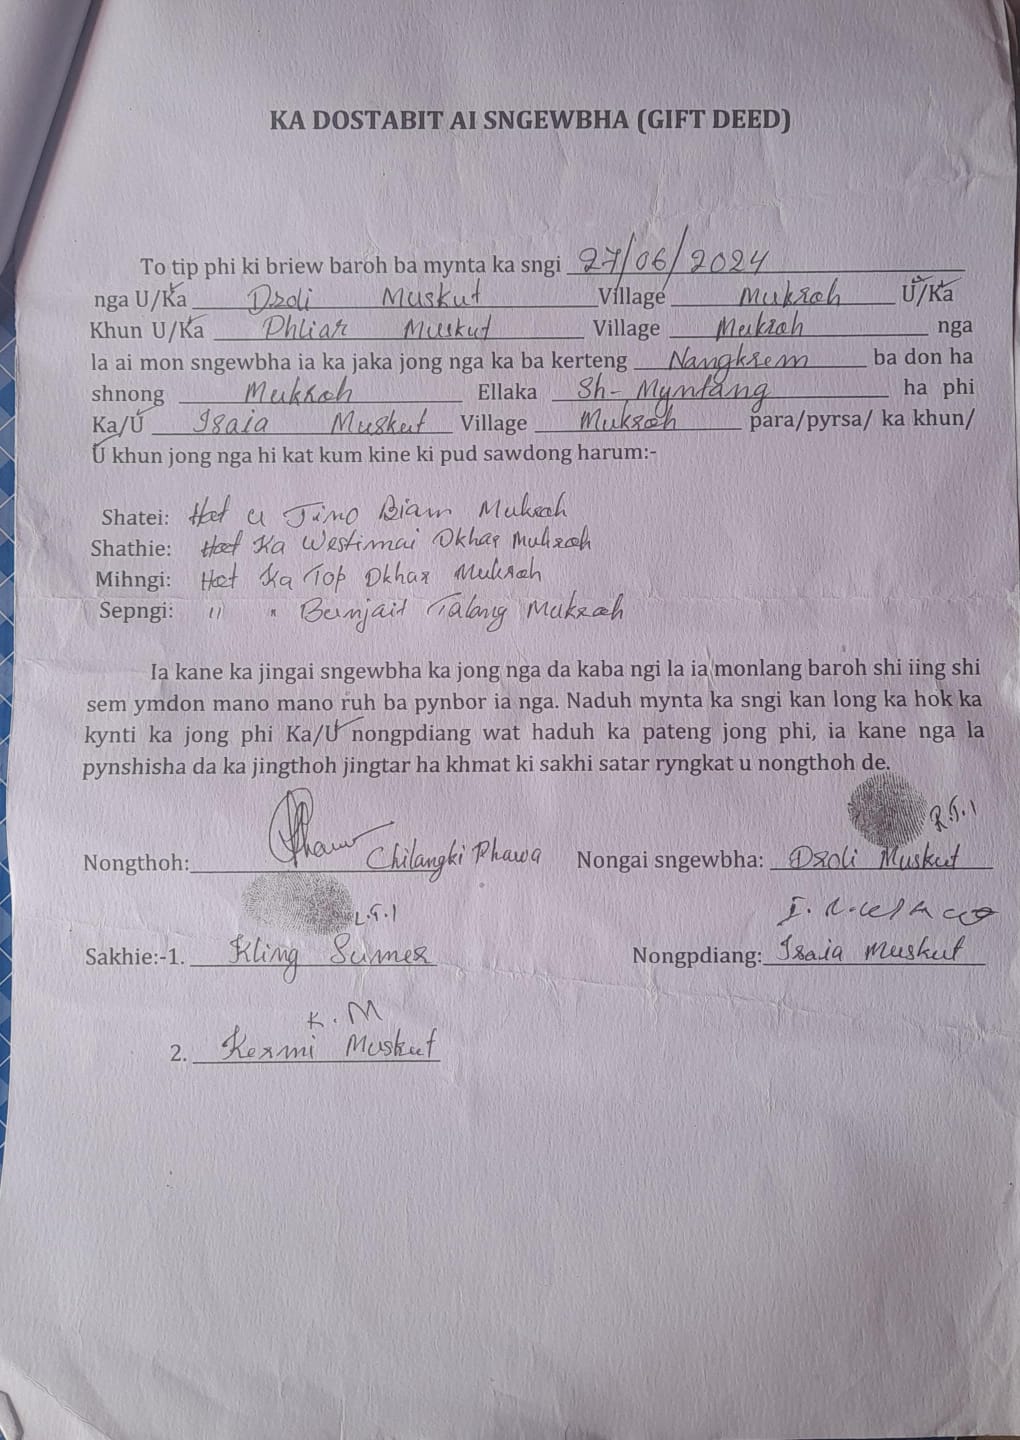 KA DOSTABIT AI SNGEWBHA (GIFT DEED)
To tip phi ki briew baroh ba mynta ka sngi 27/06/2024
nga U/Ka Droli Muskut Village Mukroh U/Ka
Khun U/Ka Phliar Muskut Village Mukroh nga
la ai mon sngewbha ia ka jaka jong nga ka ba kerteng Nangkrem ba don ha
shnong Mukroh Ellaka Sh-Myntang ha phi
Ka/U Isaia Muskut Village Mukroh para/pyrsa/ ka khun/
U khun jong nga hi kat kum kine ki pud sawdong harum:-
Shatei: Hat u Jimo Biam Mukroh
Shathie: Hat Ka Westimai Dkhar Mukroh
Mihngi: Hat Ka Top Dkhar Mukroh
Sepngi: " " Bunjait Talang Mukroh
Ia kane ka jingai sngewbha ka jong nga da kaba ngi la ia monlang baroh shi iing shi
sem ymdon mano mano ruh ba pynbor ia nga. Naduh mynta ka sngi kan long ka hok ka
kynti ka jong phi Ka/U nongpdiang wat haduh ka pateng jong phi, ia kane nga la
pynshisha da ka jingthoh jingtar ha khmat ki sakhi satar ryngkat u nongthoh de.
R.T.I
Nongthoh: Chilangki Phawa Nongai sngewbha: Droli Muskut
L.T.I
Sakhie:-1. Kling Sumer Nongpdiang: Isaia Muskut
K.M
2. Kermi Muskut